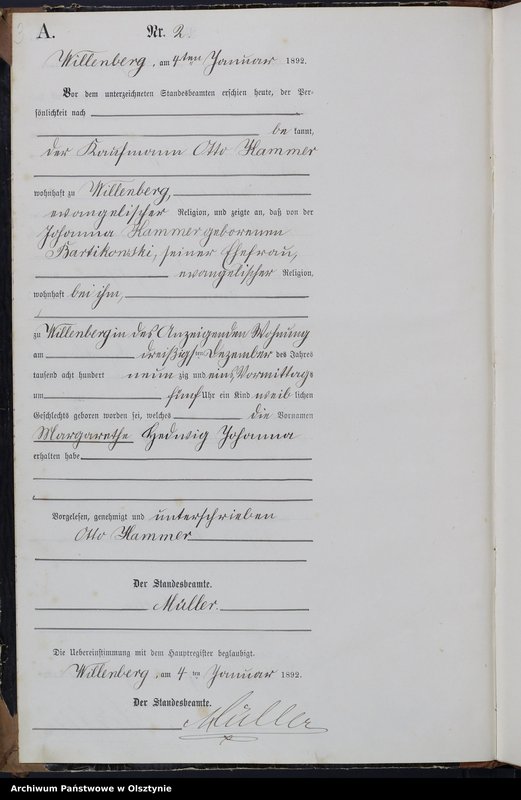 A. Nr. 2.
Willenberg, am 4ten Januar 1892.
Vor dem unterzeichneten Standesbeamten erschien heute, der Per-
sönlichkeit nach
be kannt,
der Kaufmann Otto Hammer
wohnhaft zu Willenberg,
evangelischer Religion, und zeigte an, daß von der
Johanna Hammer geborenen
Bartikowski, seiner Ehefrau,
evangelischer Religion,
wohnhaft bei ihm,
zu Willenberg in des Anzeigenden Wohnung
am dreißigsten Dezember des Jahres
tausend acht hundert neun zig und eins, Vormittags
um fünf Uhr ein Kind weib lichen
Geschlechts geboren worden sei, welches die Vornamen
Margarethe Hedwig Johanna
erhalten habe
Vorgelesen, genehmigt und unterschrieben
Otto Hammer
Der Standesbeamte.
Müller.
Die Uebereinstimmung mit dem Hauptregister beglaubigt.
Willenberg, am 4 ten Januar 1892.
Der Standesbeamte.
Müller
Archiwum Państwowe w Olsztynie